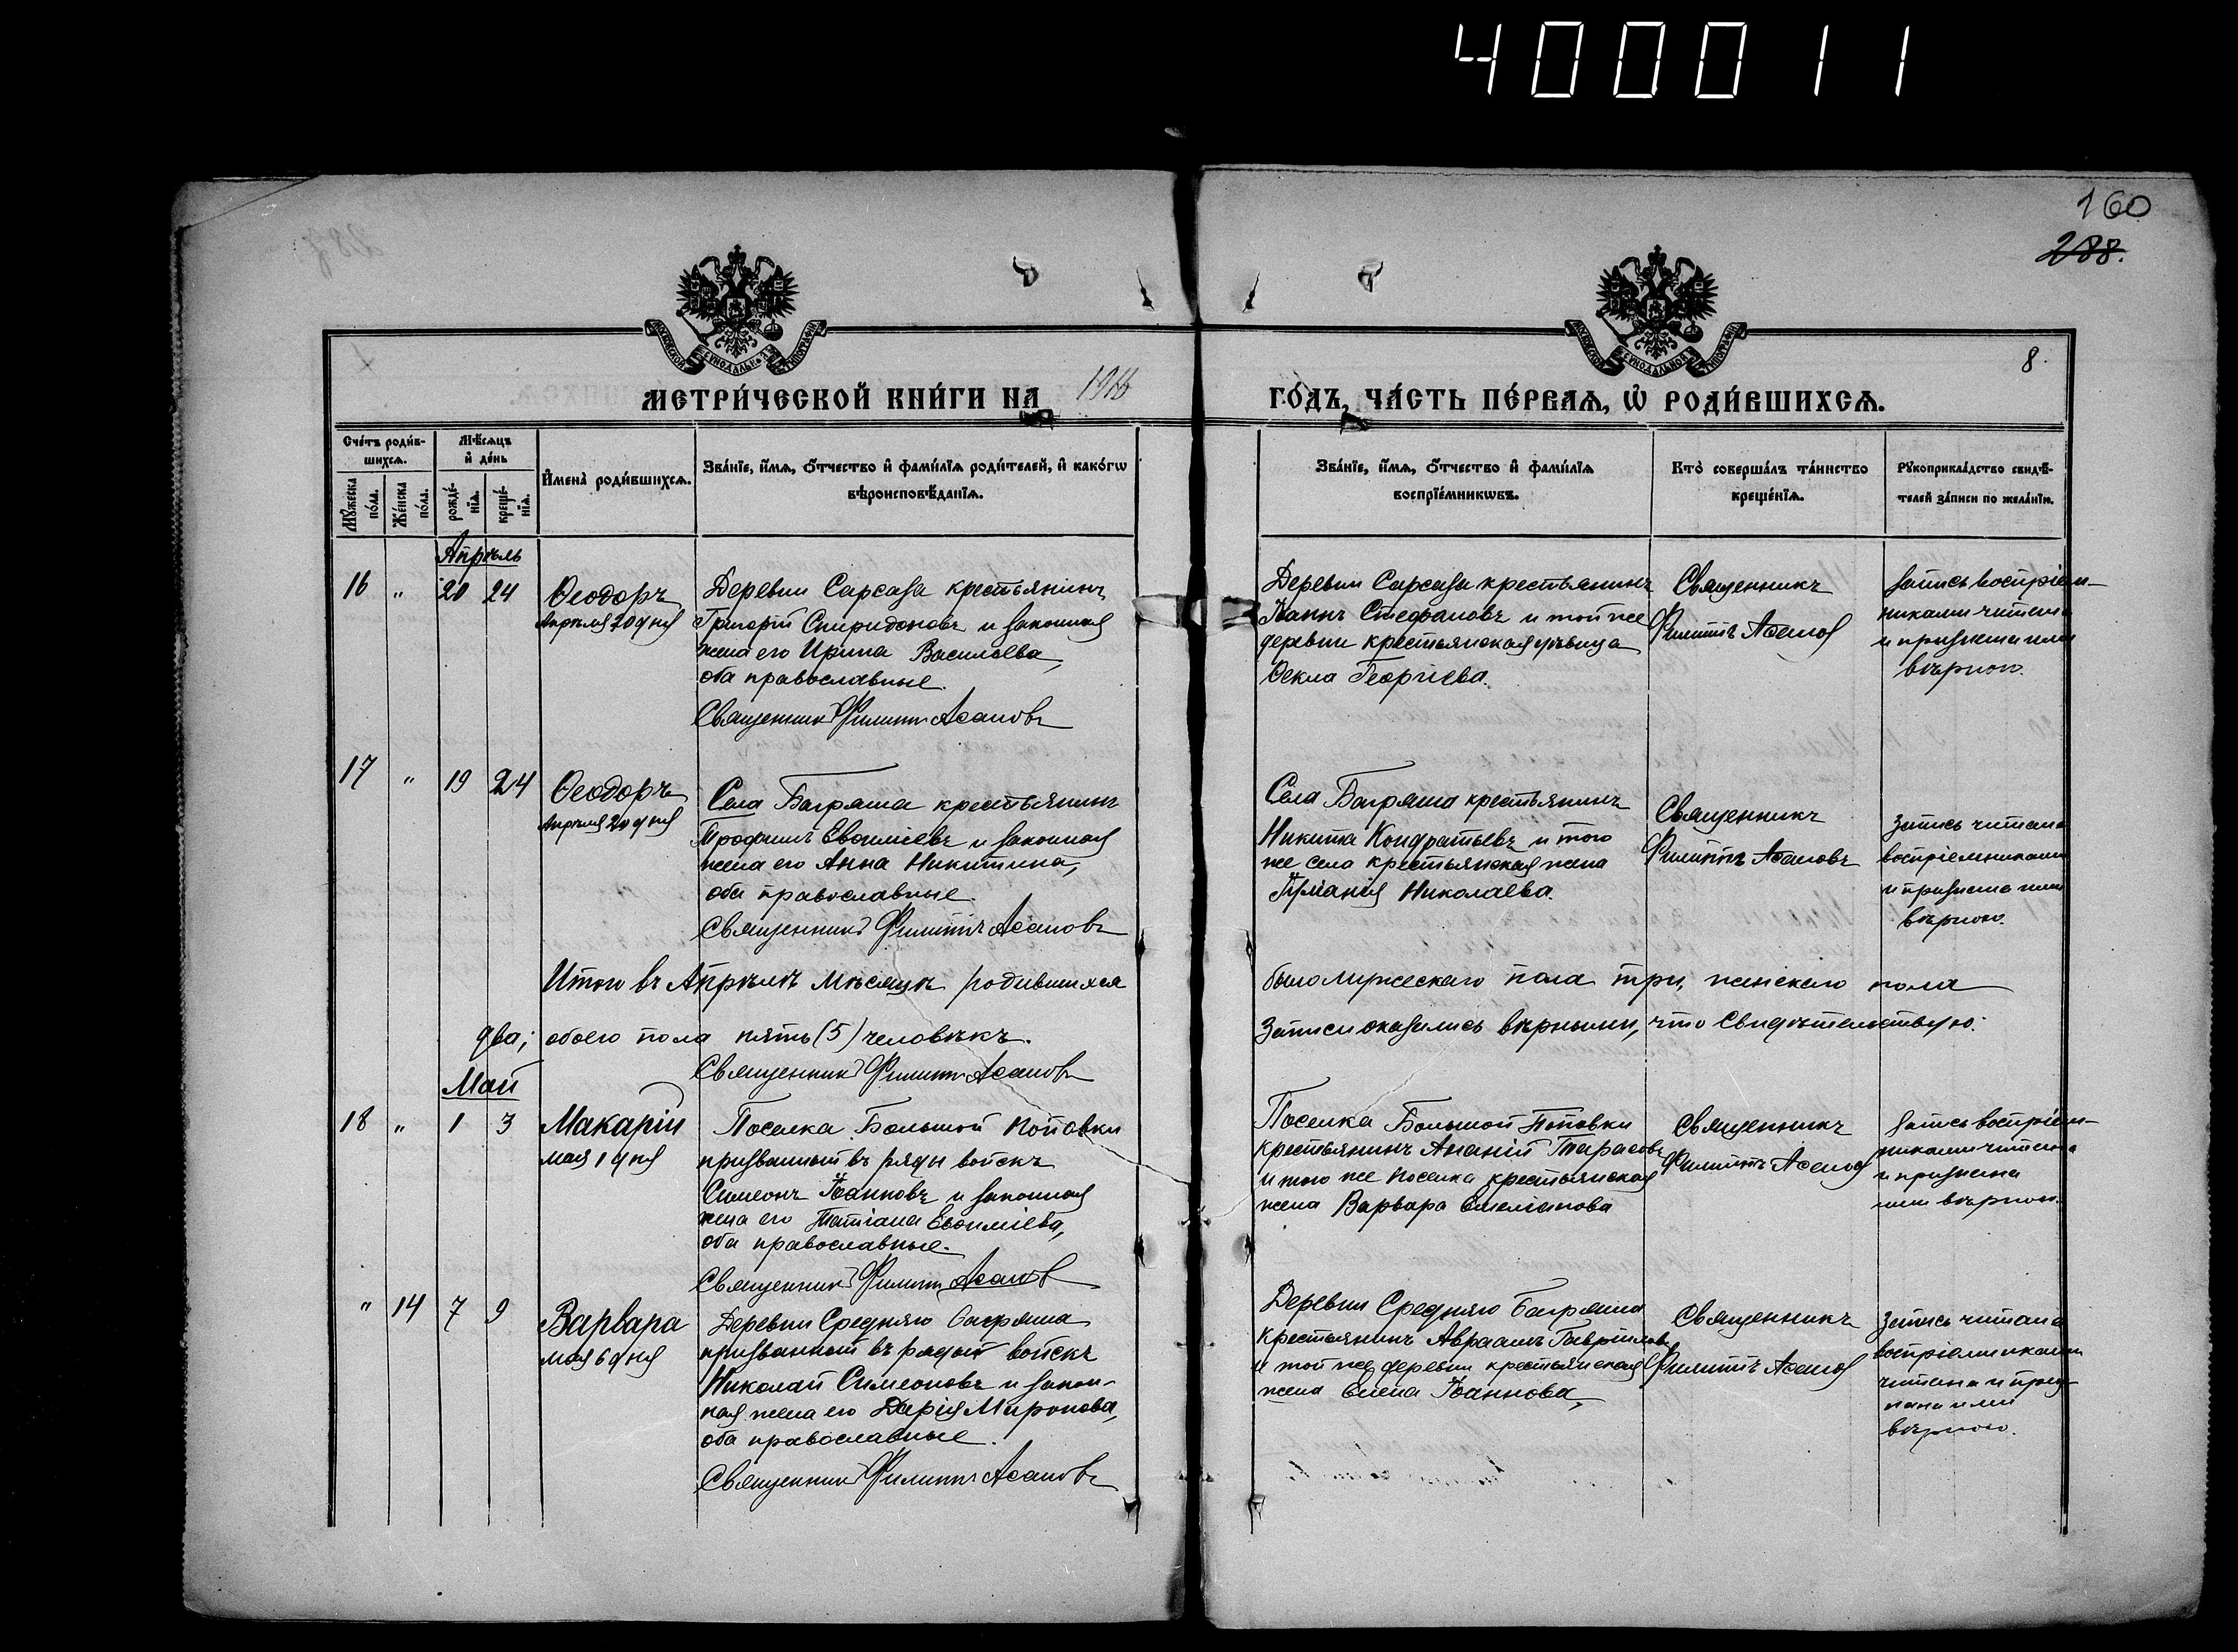 400011
160
288.
МОСКОВСКОЙ СѴНОДАЛЬНОЙ ТИПОГРАФІИ
МОСКОВСКОЙ СѴНОДАЛЬНОЙ ТИПОГРАФІИ
8.
МЕТРИ́ЧЕСКОЙ КНИ́ГИ НА 1916
ГО́ДЪ, ЧА́СТЬ ПЕ́РВАЯ, Ѡ҆ РОДИ́ВШИХСЯ.
Сче́тъ роди́в-
шихся.
Мѣ́сяцъ
и҆ де́нь
Мꙋ́жеска
по́ла.
Же́нска
по́ла.
рожде́-
нїя.
креще́-
нїя.
И҆мена̀ роди́вшихся.
Зва́нїе, и҆́мя, ѻ҆́тчество и҆ фами́лїя роди́телей, и҆ како́гѡ
вѣроисповѣ́данїя.
Зва́нїе, и҆́мя, ѻ҆́тчество и҆ фами́лїя
воспрїе́мникѡвъ.
Кто̀ соверша́лъ та́инство
креще́нїя.
Рꙋкоприкла́дство свидѣ́-
телей за́писи по жела́нїю.
Апрѣль
16 " 20 24
Ѳеодоръ
Апрѣля 20 дня
Деревни Сарсаза крестьянинъ
Григорій Спиридоновъ и законная
жена его Ирина Васильева,
оба православные.
Священникъ Филиппъ Асановъ
Деревни Сарсаза крестьянинъ
Іоаннъ Стефановъ и той же
деревни крестьянская дѣвица
Ѳекла Георгіева.
Священникъ
Филиппъ Асановъ
Запись воспріем-
никами читана
и признана ими
вѣрною.
17 " 19 24
Ѳеодоръ
Апрѣля 20 дня
Села Багряша крестьянинъ
Трофимъ Евѳиміевъ и законная
жена его Анна Никитина,
оба православные.
Священникъ Филиппъ Асановъ
Села Багряша крестьянинъ
Никита Кондратьевъ и того
же села крестьянская жена
Іуліанія Николаева.
Священникъ
Филиппъ Асановъ
Запись читана
воспріемниками
и признана ими
вѣрною.
Итого въ Апрѣлѣ мѣсяцѣ родившихся
было мужескаго пола три, женскаго пола
два; обоего пола пять (5) человѣкъ.
Записи оказались вѣрными, что свидѣтельствую:
Священникъ Филиппъ Асановъ
Май
18 " 1 3
Макарій
мая 1 дня
Поселка Большой Поповки
призванный въ ряды войскъ
Симеонъ Іоанновъ и законная
жена его Татіана Евѳиміева,
оба православные.
Священникъ Филиппъ Асановъ
Поселка Большой Поповки
крестьянинъ Ананій Тарасовъ
и того же поселка крестьянская
жена Варвара Емельянова
Священникъ
Филиппъ Асановъ
Запись воспріем-
никами читана
и признана
ими вѣрною.
" 14 7 9
Варвара
мая 6 дня
Деревни Средняго Багряша
призванный въ ряды войскъ
Николай Симеоновъ и закон-
ная жена его Дарія Миронова,
оба православные.
Священникъ Филиппъ Асановъ
Деревни Средняго Багряша
крестьянинъ Авраамъ Гавріиловъ
и той же деревни крестьянская
жена Елена Іоаннова,
Священникъ
Филиппъ Асановъ
Запись читана
воспріемниками
читана и приз-
нана ими
вѣрною.